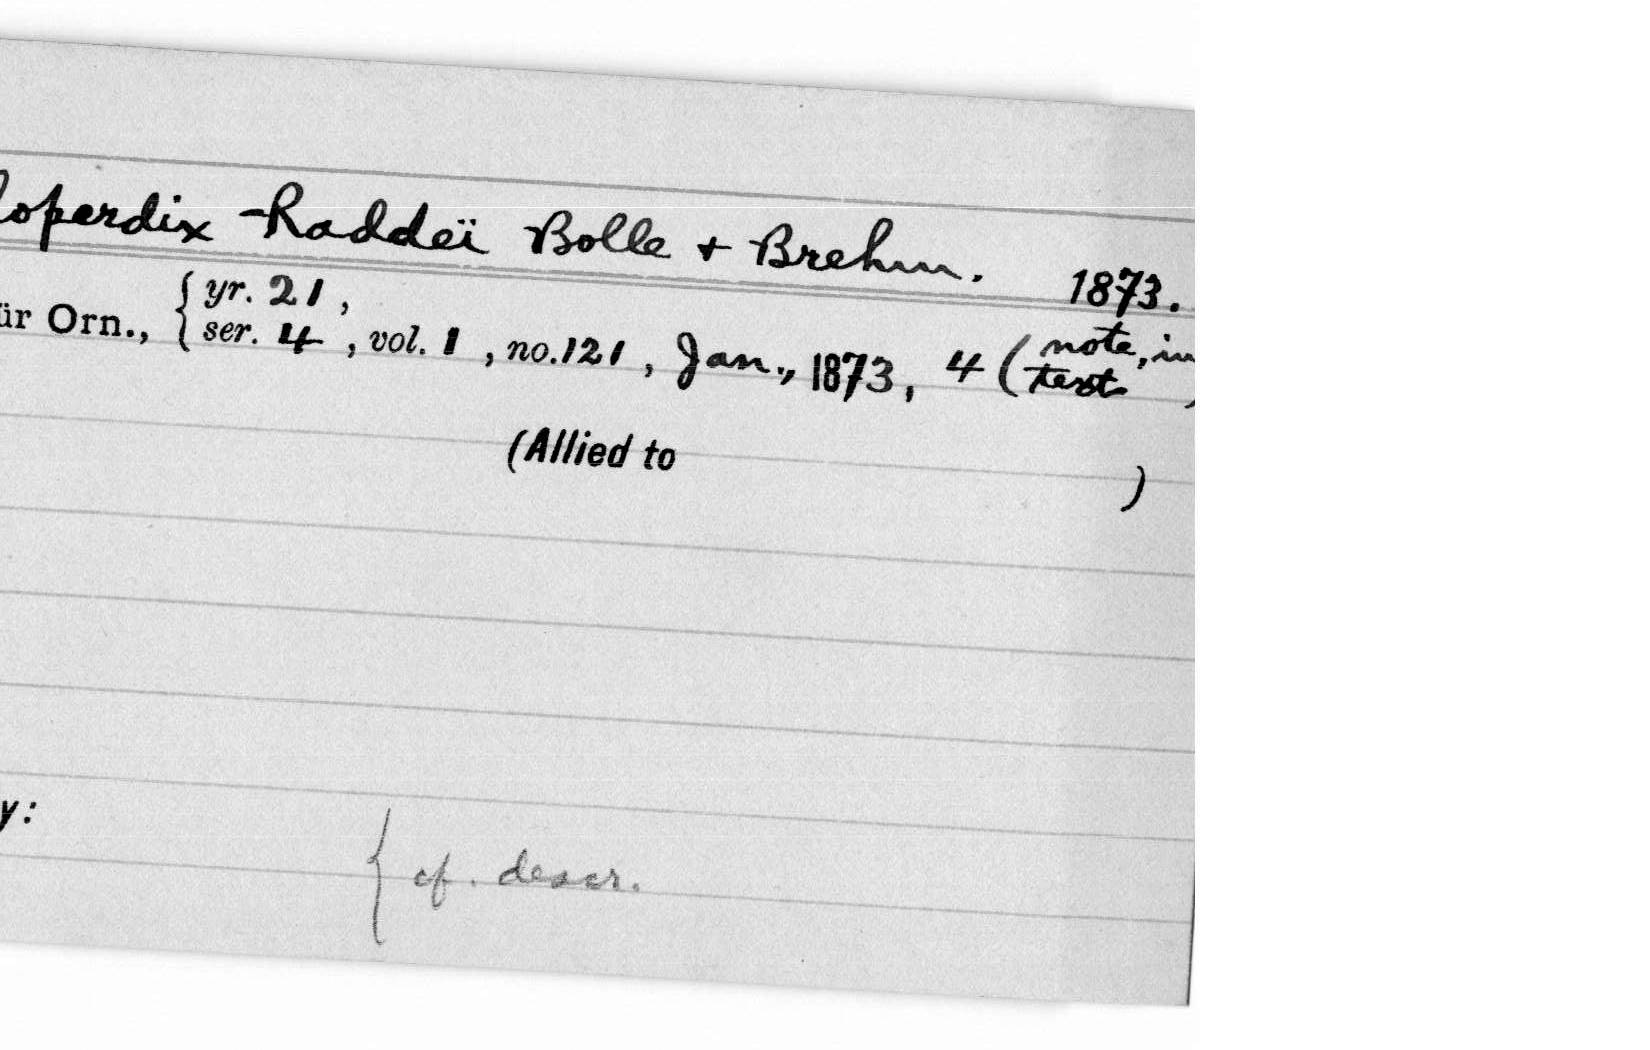 loperdix Raddeï Bolle + Brehm. 1873.
ür Orn., { yr. 21,
ser. 4, vol. 1, no. 121, Jan., 1873, 4 (note, in
text)
(Allied to )
y:
{ cf. descr.